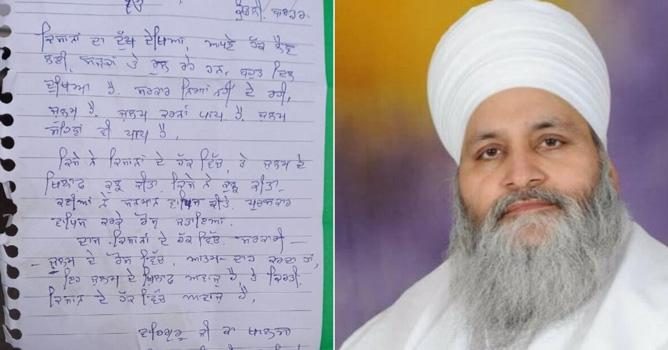 ਕਿਸਾਨਾਂ ਦਾ ਦੁੱਖ ਦੇਖਿਆ, ਆਪਣੇ ਹੱਕ ਲੈਣ
ਲਈ, ਸੜਕਾਂ ਤੇ ਰੁਲ ਰਹੇ ਹਨ, ਬਹੁਤ ਦਿਲ
ਦੁਖਿਆ ਹੈ. ਸਰਕਾਰ ਨਿਆਂ ਨਹੀਂ ਦੇ ਰਹੀ,
ਜੁਲਮ ਹੈ. ਜੁਲਮ ਕਰਨਾਂ ਪਾਪ ਹੈ. ਜੁਲਮ
ਸਹਿਣਾ ਵੀ ਪਾਪ ਹੈ.
ਕਿਸੇ ਨੇ ਕਿਸਾਨਾਂ ਦੇ ਹੱਕ ਵਿੱਚ, ਤੇ ਜੁਲਮ ਦੇ
ਖਿਲਾਫ ਕੁਝ ਕੀਤਾ. ਕਿਸੇ ਨੇ ਕੁਝ ਕੀਤਾ.
ਕਈਆਂ ਨੇ ਸਨਮਾਨ ਵਾਪਿਸ ਕੀਤੇ, ਪੁਰਸਕਾਰ
ਵਾਪਿਸ ਕਰਕੇ ਰੋਸ ਜਤਾਇਆ.
ਦਾਸ ਕਿਸਾਨਾਂ ਦੇ ਹੱਕ ਵਿੱਚ, ਸਰਕਾਰੀ -
- ਜੁਲਮ ਦੇ ਰੋਸ ਵਿੱਚ, ਆਤਮ-ਦਾਹ ਕਰਦਾ ਹਾਂ,
ਇਹ ਜੁਲਮ ਦੇ ਖਿਲਾਫ ਆਵਾਜ਼ ਹੈ ਤੇ ਕਿਰਤੀ
ਕਿਸਾਨ ਦੇ ਹੱਕ ਵਿੱਚ ਆਵਾਜ਼ ਹੈ,
ਵਾਹਿਗੁਰੂ ਜੀ ਕਾ ਖਾਲਸਾ